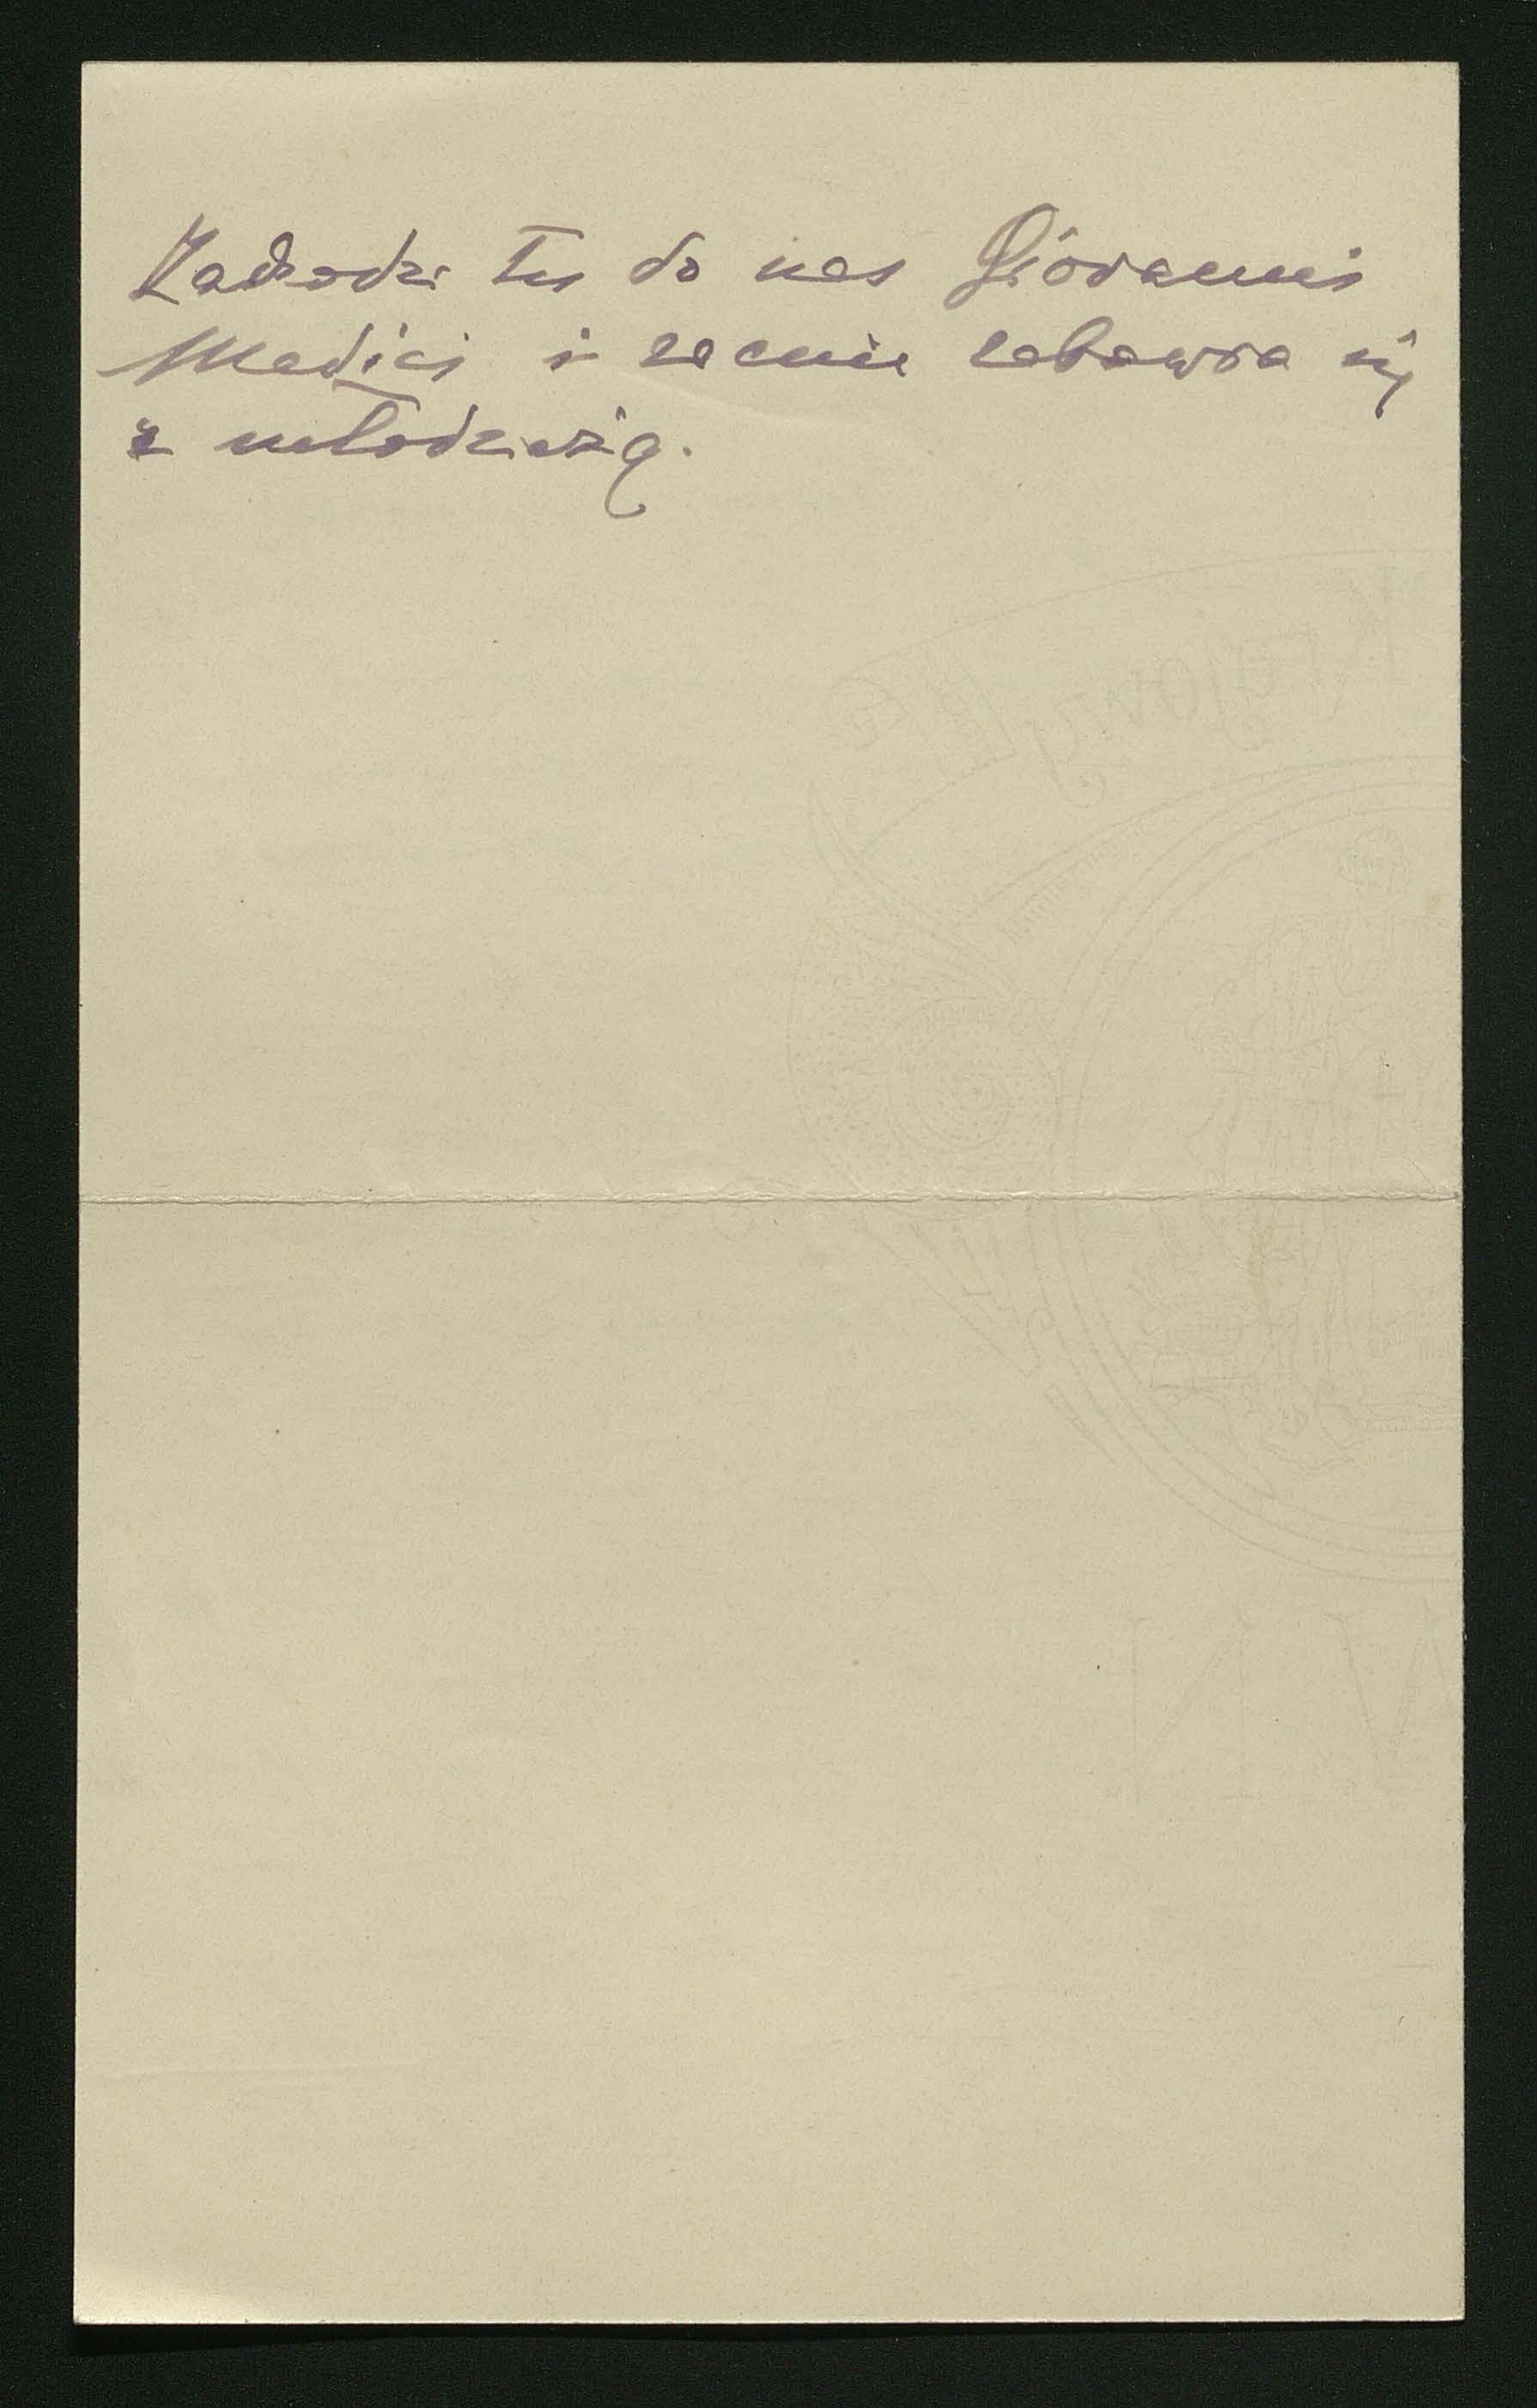 Zachodzi tu do nas Giovanni
Medici i zacnie zabawia się
z młodzieżą.